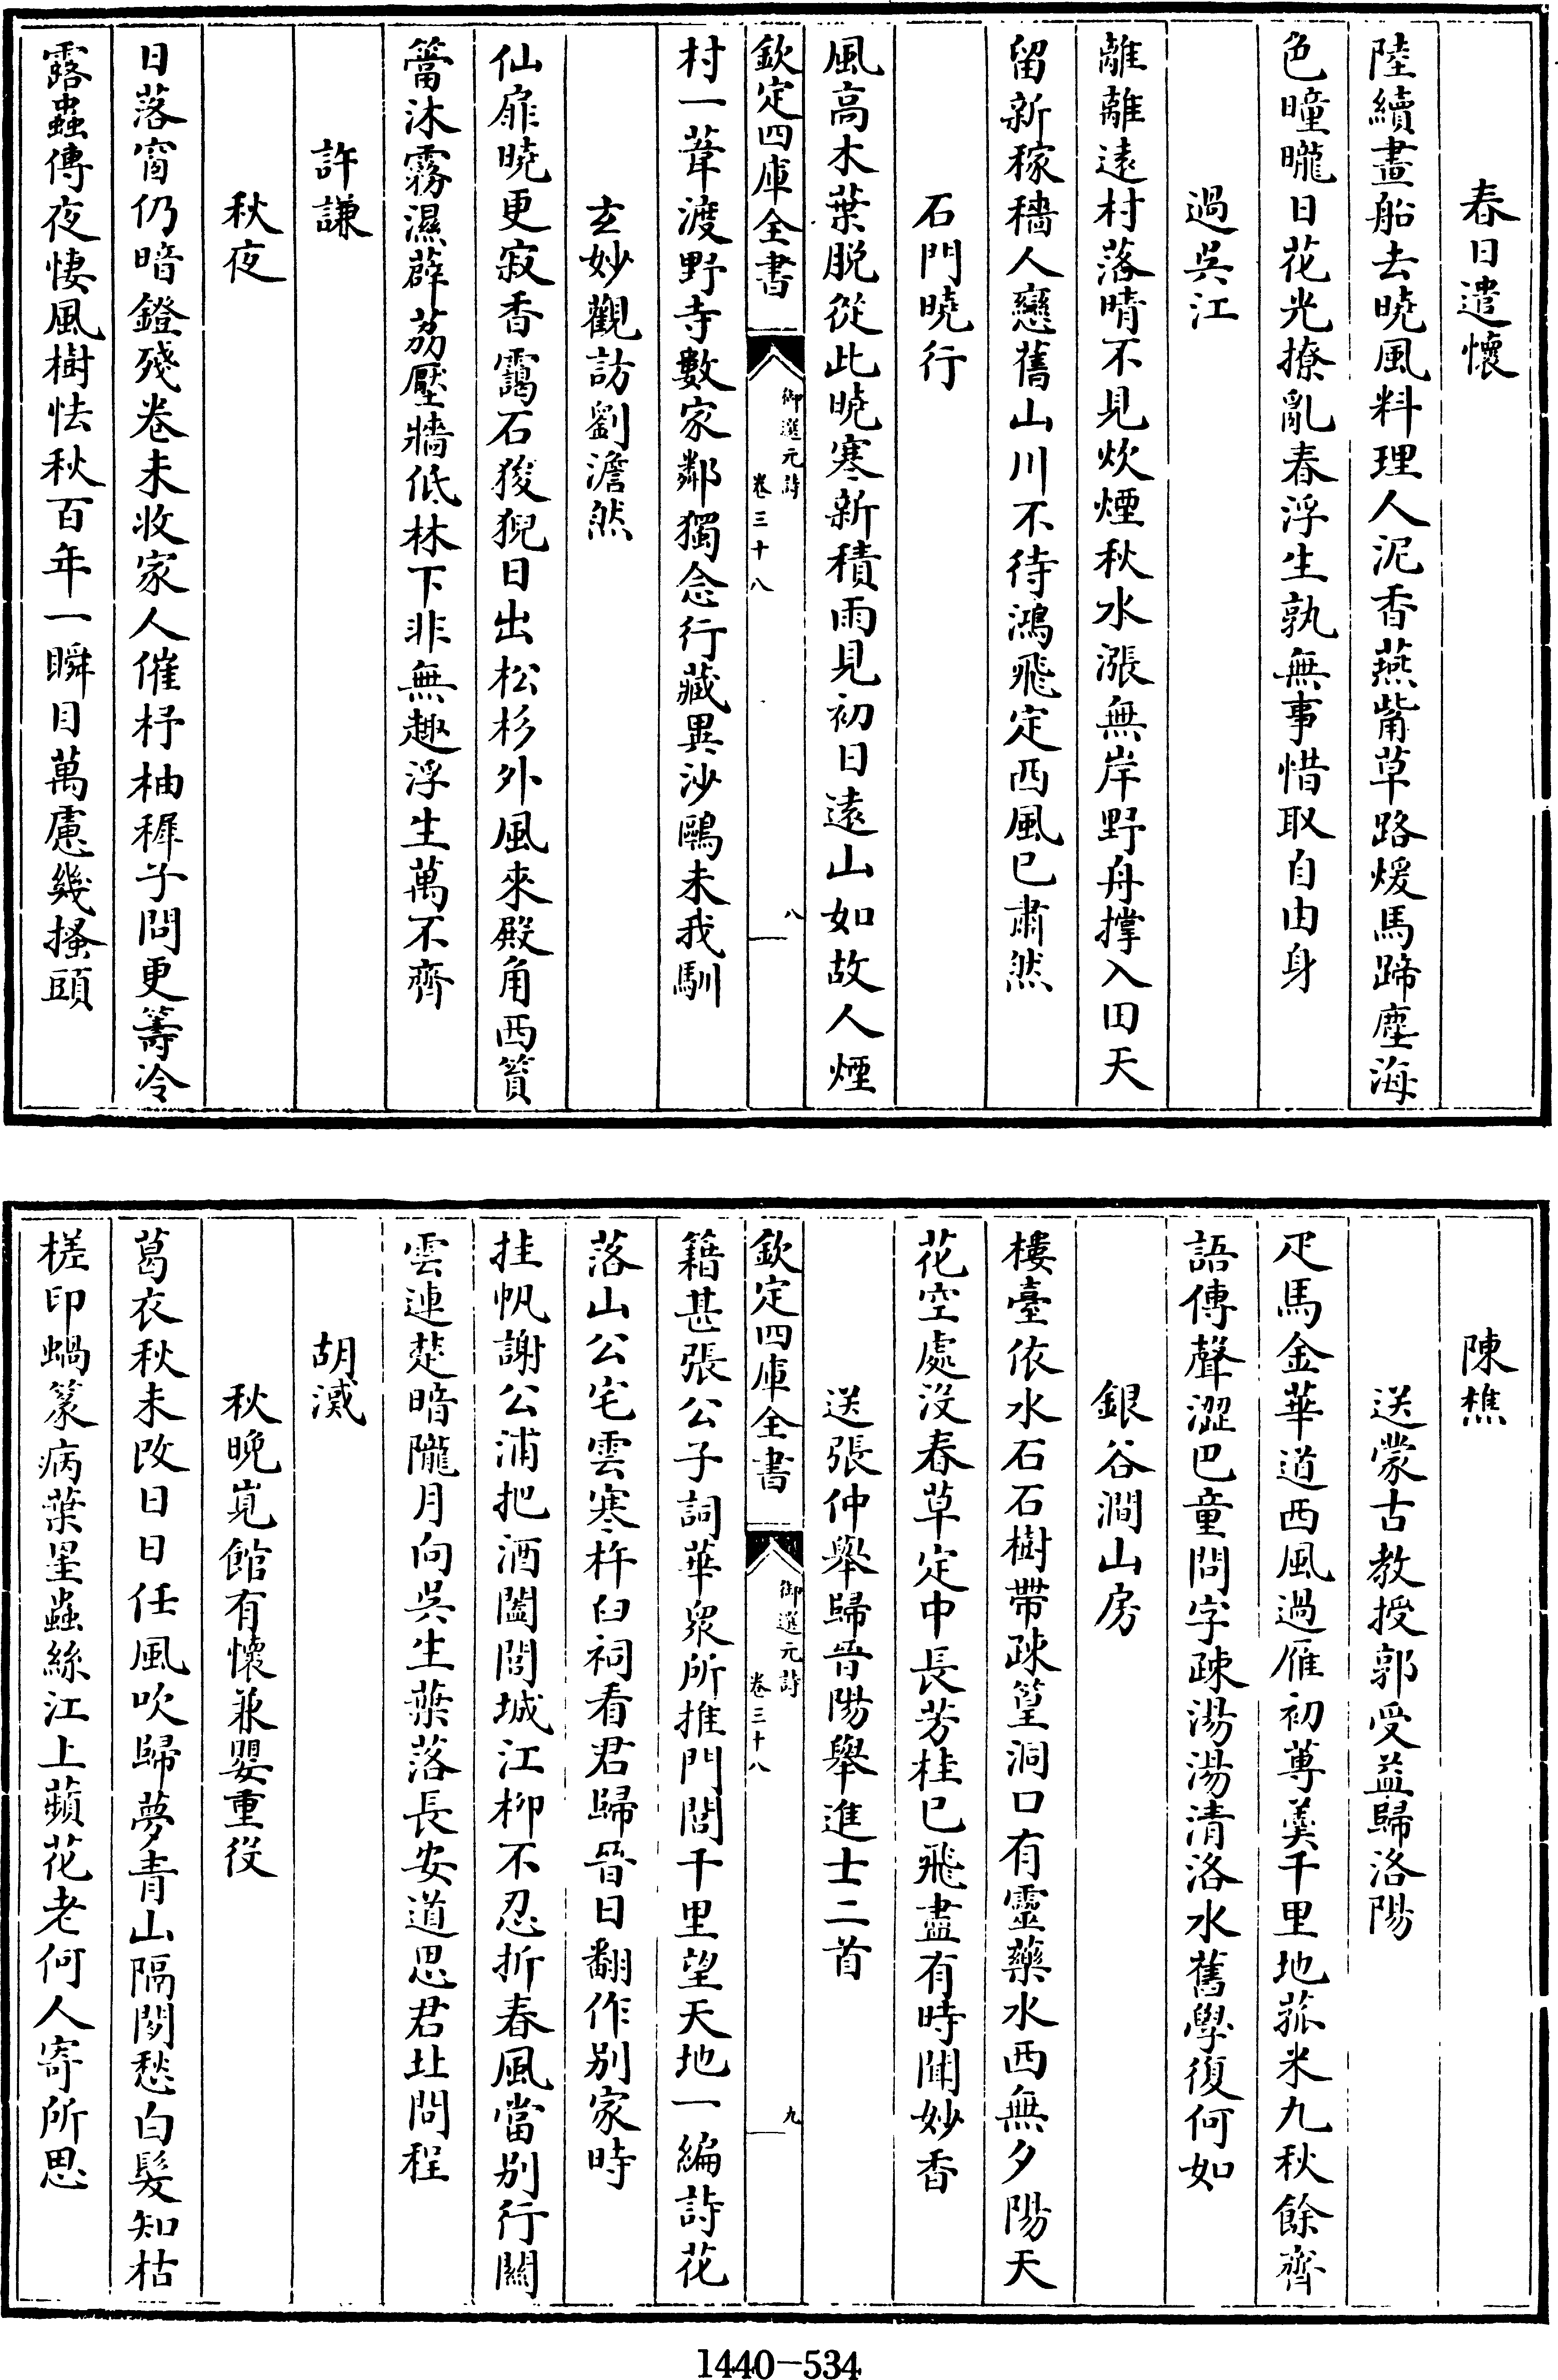 春日遣懷
陸續畫船去曉風料理人泥香燕觜草路煖馬蹄塵海
色曈曨日花光撩亂春浮生孰無事惜取自由身
過吳江
離離遠村落晴不見炊煙秋水漲無岸野舟撑入田天
留新稼穡人戀舊山川不待鴻飛定西風已肅然
石門曉行
風高木葉脫從此曉寒新積雨見初日遠山如故人煙
欽定四庫全書
御選元詩
卷三十八
八
村一葦渡野寺數家鄰獨念行藏異沙鷗未我馴
玄妙觀訪劉澹然
仙扉曉更寂香靄石狻猊日出松杉外風來殿角西篔
簹沐霧濕薜荔壓牆低林下非無趣浮生萬不齊
許謙
秋夜
日落窗仍暗鐙殘卷未收家人催杼柚穉子問更籌冷
露蟲傳夜悽風樹怯秋百年一瞬目萬慮幾搔頭
陳樵
送蒙古教授郭受益歸洛陽
疋馬金華道西風過雁初蓴羮千里地菰米九秋餘齊
語傳聲澀巴童問字疎湯湯清洛水舊學復何如
銀谷澗山房
樓臺依水石石樹帶疎篁洞口有靈藥水西無夕陽天
花空處沒春草定中長芳桂已飛盡有時聞妙香
送張仲舉歸晉陽舉進士二首
欽定四庫全書
御選元詩
卷三十八
九
籍甚張公子詞華衆所推門閭千里望天地一編詩花
落山公宅雲寒杵臼祠看君歸晉日翻作別家時
挂帆謝公浦把酒闔閭城江柳不忍折春風當別行關
雲連楚暗隴月向吳生葉落長安道思君北問程
胡減
秋晚覓館有懷兼嬰重役
葛衣秋未改日日任風吹歸夢青山隔閒愁白髮知枯
槎印蝸篆病葉墨蟲絲江上蘋花老何人寄所思
1440-534